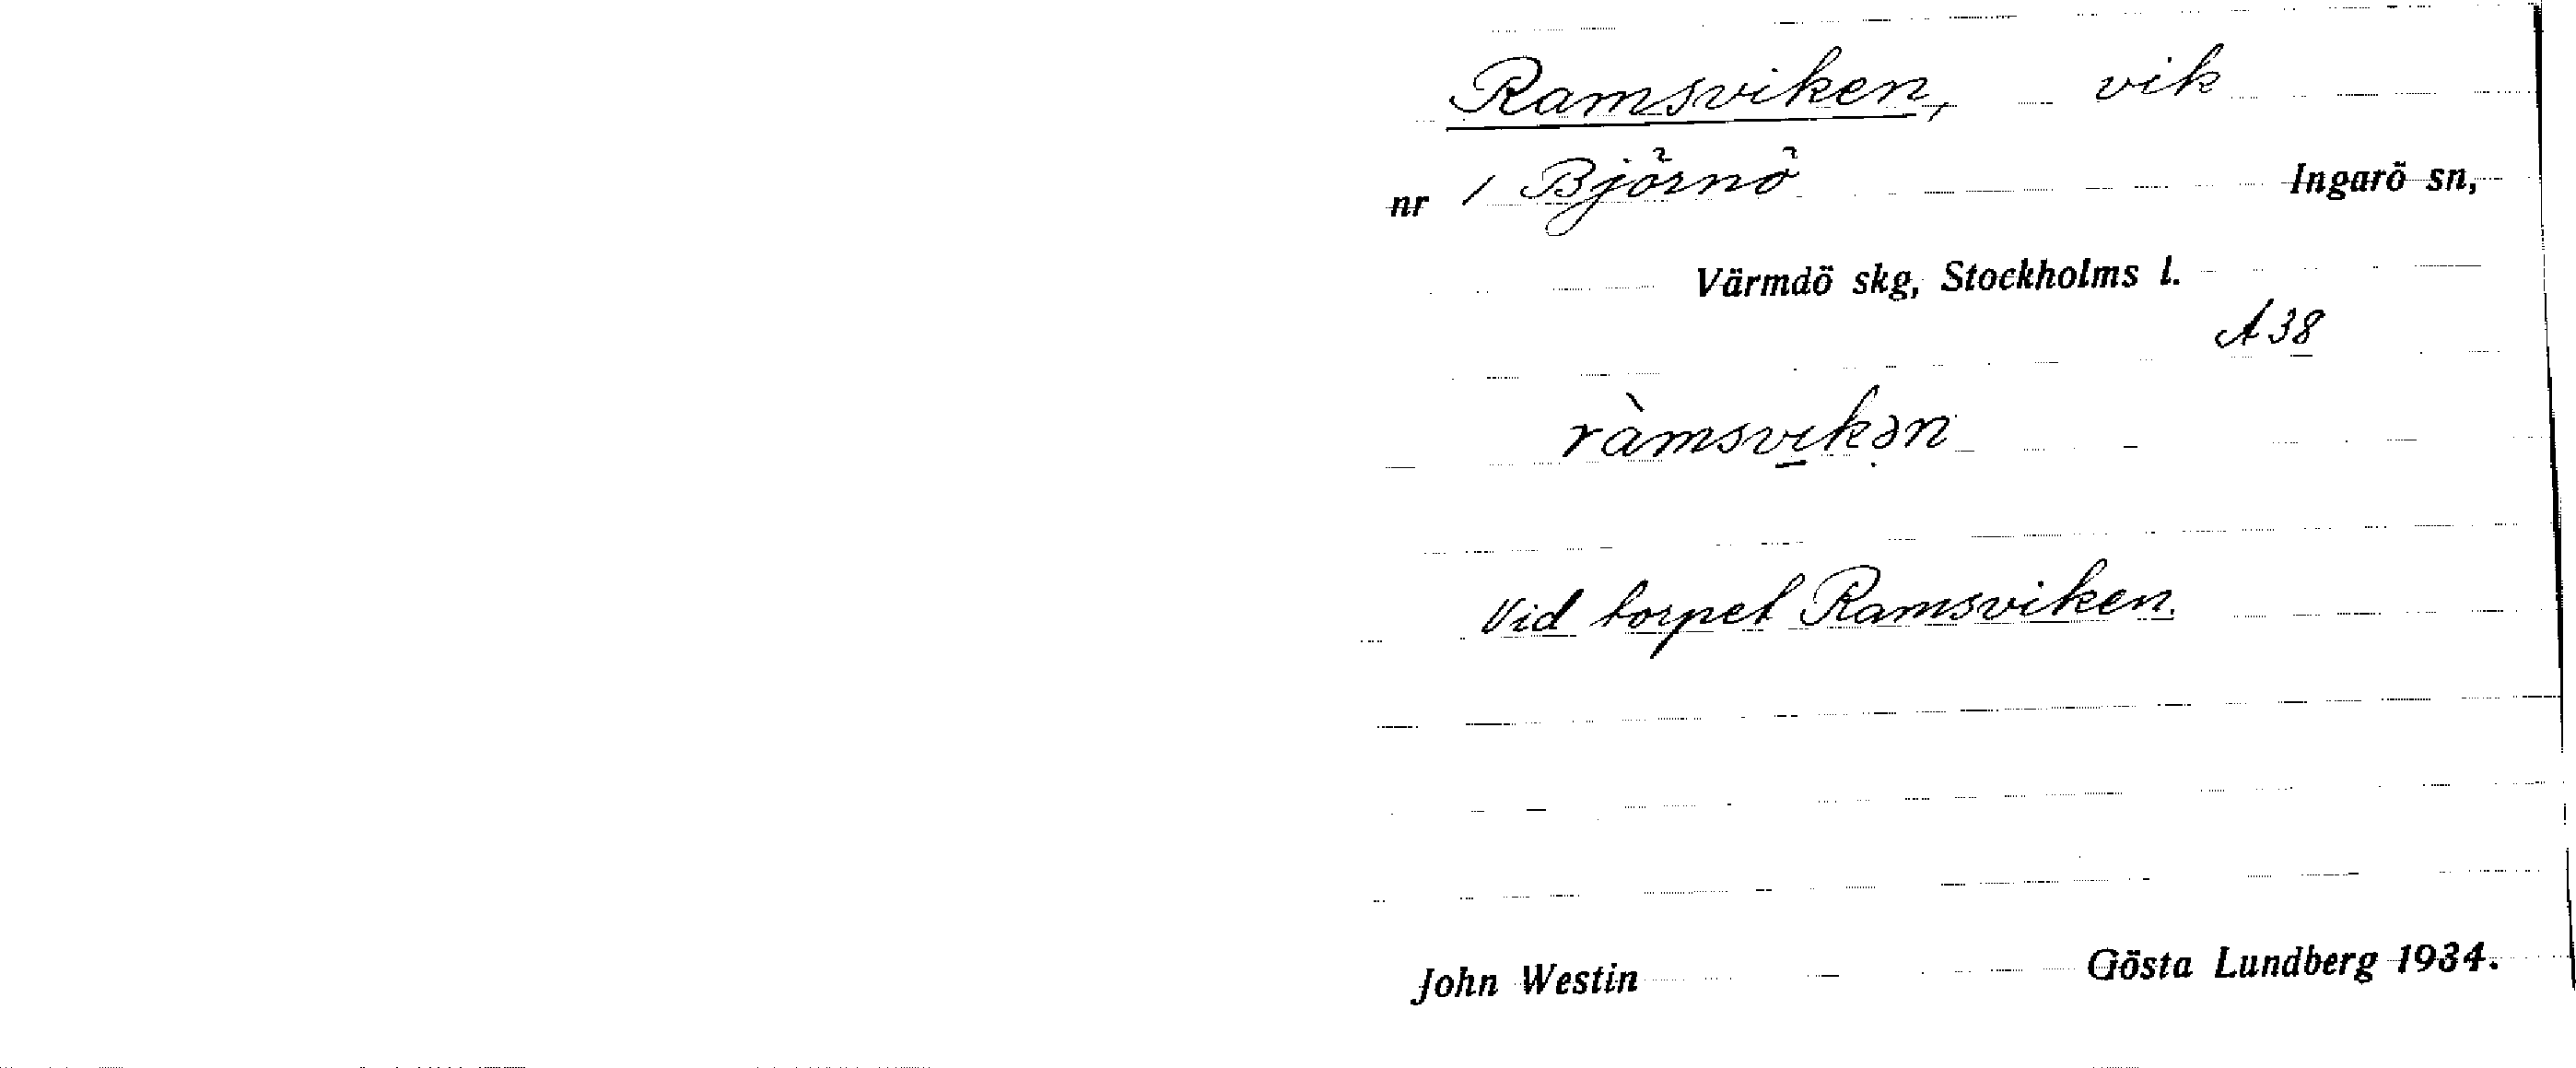 Ramsviken, vik
nr 1 Björnö Ingarö sn,
Värmdö skg, Stockholms l.
A 38
ràmsvi̱kən
Vid torpet Ramsviken.
John Westin Gösta Lundberg 1934.